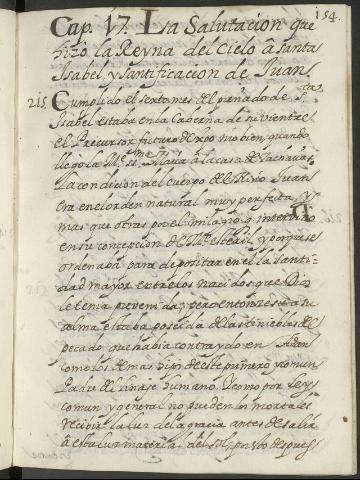 154.
Cap. 17. La Salutacion que
hizo la Reyna del Cielo â santa
Isabel, y santificacion de Juan.
215. Cumplido el sexto mes del preñado de S.ta
Isabel estaba en la Caberna de su vientre
el Precursor futuro de xpo nro bien, quando
llego la M.e SS.ma Maria â la casa de Zacharias.
La condicion del cuerpo del Niño Juan
era en el orden natural muy perfecta, y
mas que otras por el milagro q interbino
en su concepcion de M.e esteril, y porque se
ordenaba para depositar en el la Santi-
dad mayor entre los nacidos que Dios
le tenia prevenida; pero entonzes su
alma estaba poseida de las tinieblas del
pecado que habia contraydo en Adan
como los demas hijos de este primero y comun
Padre del linage humano. Y como por Ley
comun y general no pueden los mortales
recibir la luz de la gracia antes de salir
â esta luz material del sol, por eso despues